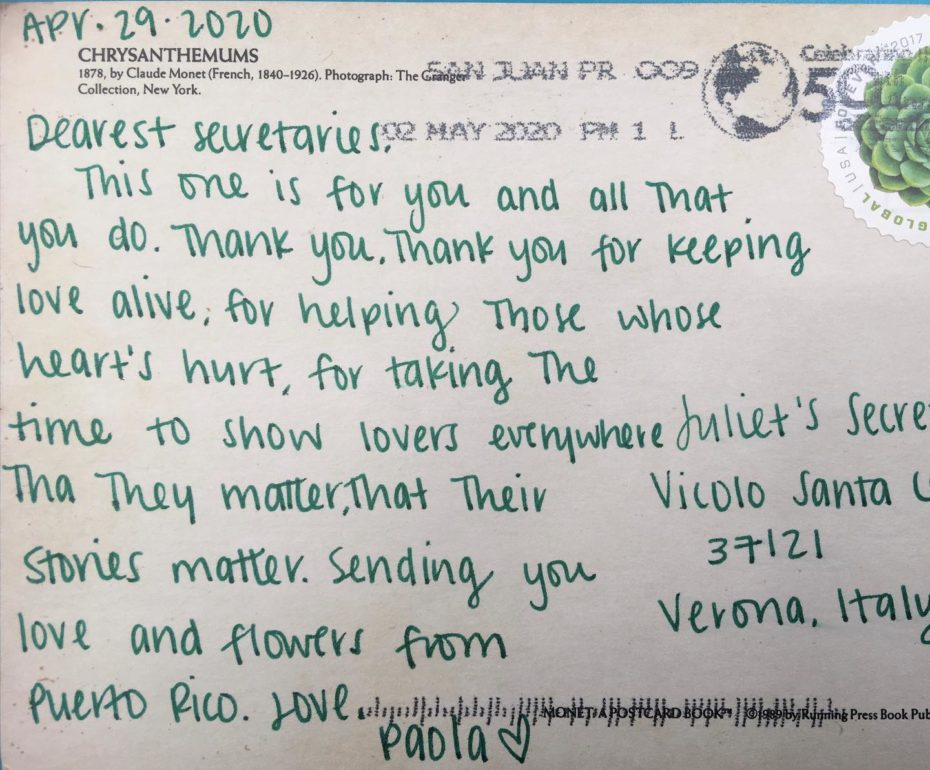 APr. 29. 2020
CHRYSANTHEMUMS
1878, by Claude Monet (French, 1840–1926). Photograph: The Granger
Collection, New York.
SAN JUAN PR 009
02 MAY 2020 PM 1 L
Celebrating
50
2017
USA FOREVER
GLOBAL
Dearest secretaries,
This one is for you and all That
you do. Thank you. Thank you for keeping
love alive, for helping Those whose
heart's hurt, for taking The
time to show lovers everywhere
Tha They matter, That Their
stories matter. Sending you
love and flowers from
Puerto Rico. Love,
Paola
Juliet's Secre
Vicolo Santa C
37121
Verona, Italy
MONET: A POSTCARD BOOK™ ©1989 by Running Press Book Pub